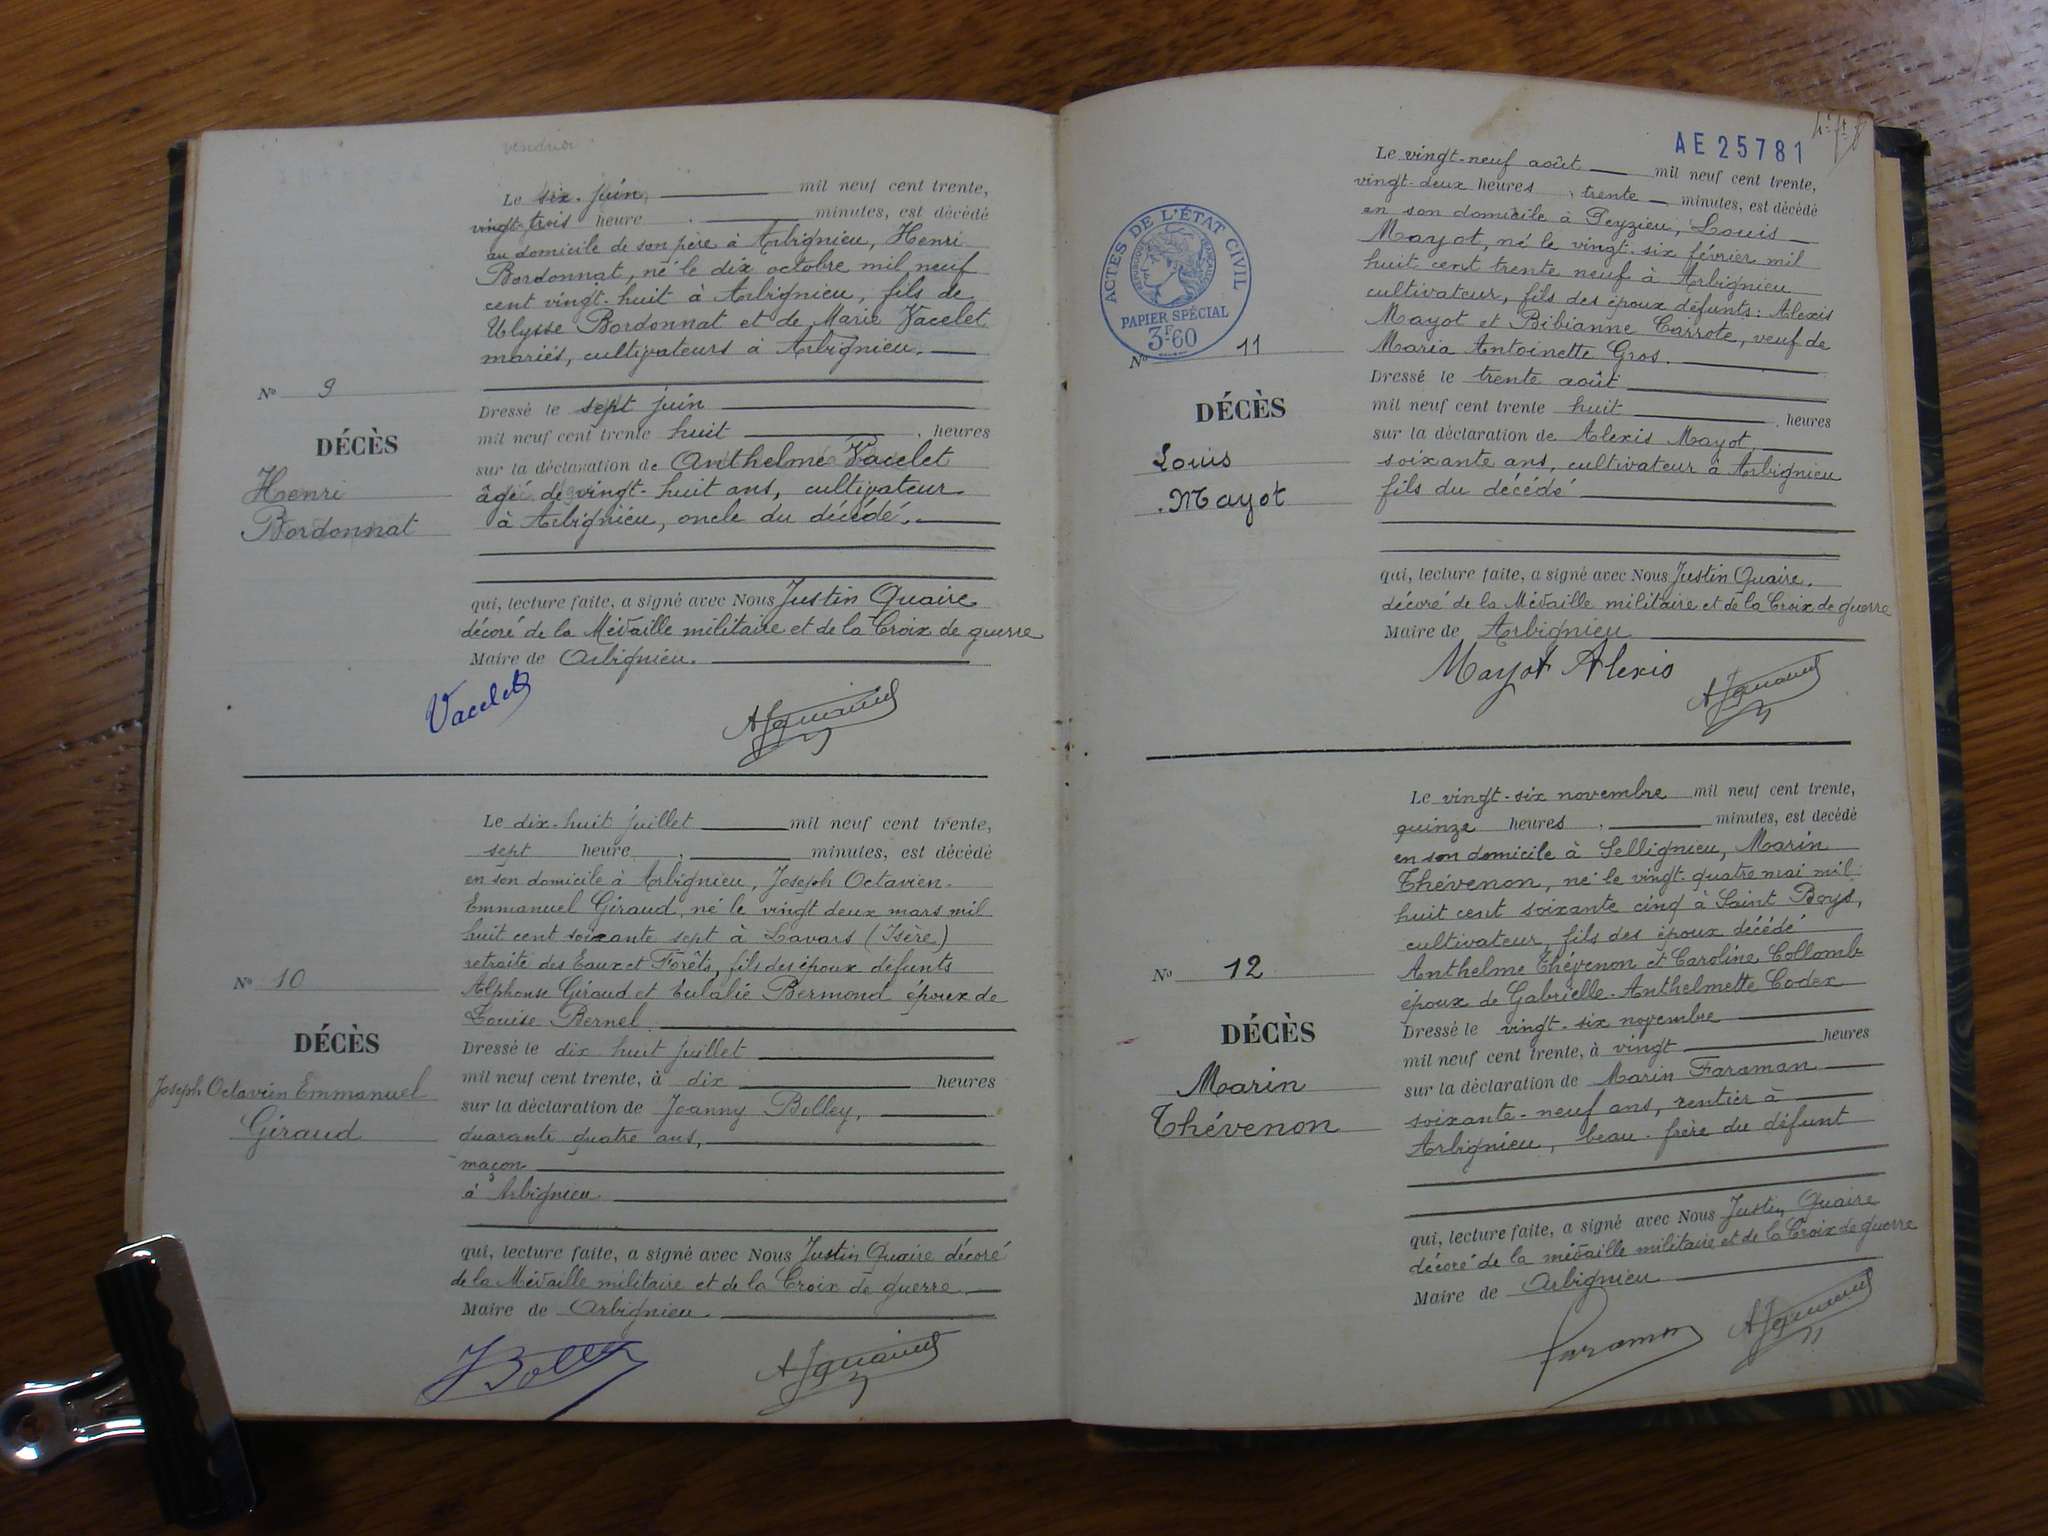 vendredi
Le six juin mil neuf cent trente,
vingt-trois heure minutes, est décédé
au domicile de son père à Arbignieu, Henri
Bordonnat, né le dix octobre mil neuf
cent vingt-huit à Arbignieu, fils de
Ulysse Bordonnat et de Marie Vacelet
mariés, cultivateurs à Arbignieu.
Nº 9
DÉCÈS
Henri
Bordonnat
Dressé le sept juin
mil neuf cent trente huit heures
sur la déclaration de Anthelme Vacelet
âgé de vingt-huit ans, cultivateur
à Arbignieu, oncle du décédé.
qui, lecture faite, a signé avec Nous Justin Quaire
décoré de la Médaille militaire et de la Croix de guerre
Maire de Arbignieu.
Vacelet
Le dix-huit juillet mil neuf cent trente,
sept heure, minutes, est décédé
en son domicile à Arbignieu, Joseph Octavien
Emmanuel Giraud, né le vingt deux mars mil
huit cent soixante sept à Lavars (Isère)
retraité des Eaux et Forêts, fils des époux défunts
Alphonse Giraud et Eulalie Bermond époux de
Louise Bernel
Nº 10
DÉCÈS
Joseph Octavien Emmanuel
Giraud
Dressé le dix huit juillet
mil neuf cent trente, à dix heures
sur la déclaration de Joanny Bolley,
quarante quatre ans,
maçon
à Arbignieu
qui, lecture faite, a signé avec Nous Justin Quaire décoré
de la Médaille militaire et de la Croix de guerre
Maire de Arbignieu
J Bolley
AE 25781
Le vingt-neuf août mil neuf cent trente,
vingt-deux heures, trente minutes, est décédé
en son domicile à Peyzieu, Louis
Mayot, né le vingt-six février mil
huit cent trente neuf à Arbignieu
cultivateur, fils des époux défunts: Alexis
Mayot et Bibianne Carrote, veuf de
Maria Antoinette Gros.
ACTES DE L'ÉTAT CIVIL
RÉPUBLIQUE FRANÇAISE
PAPIER SPÉCIAL
3F60
Nº 11
DÉCÈS
Louis
Mayot
Dressé le trente août
mil neuf cent trente huit heures
sur la déclaration de Alexis Mayot,
soixante ans, cultivateur à Arbignieu
fils du décédé
qui, lecture faite, a signé avec Nous Justin Quaire.
décoré de la Médaille militaire et de la Croix de guerre
Maire de Arbignieu
Mayot Alexis
Le vingt-six novembre mil neuf cent trente,
quinze heures, minutes, est décédé
en son domicile à Sellignieu, Marin
Thévenon, né le vingt-quatre mai mil
huit cent soixante cinq à Saint Boys,
cultivateur, fils des époux décédé
Anthelme Thévenon et Caroline Collomb
époux de Gabrielle-Anthelmette Codex
Nº 12
DÉCÈS
Marin
Thévenon
Dressé le vingt-six novembre
mil neuf cent trente, à vingt heures
sur la déclaration de Marin Faraman
soixante-neuf ans, rentier à
Arbignieu, beau-frère du défunt
qui, lecture faite, a signé avec Nous Justin Quaire
décoré de la médaille militaire et de la Croix de guerre
Maire de Arbignieu
Faraman